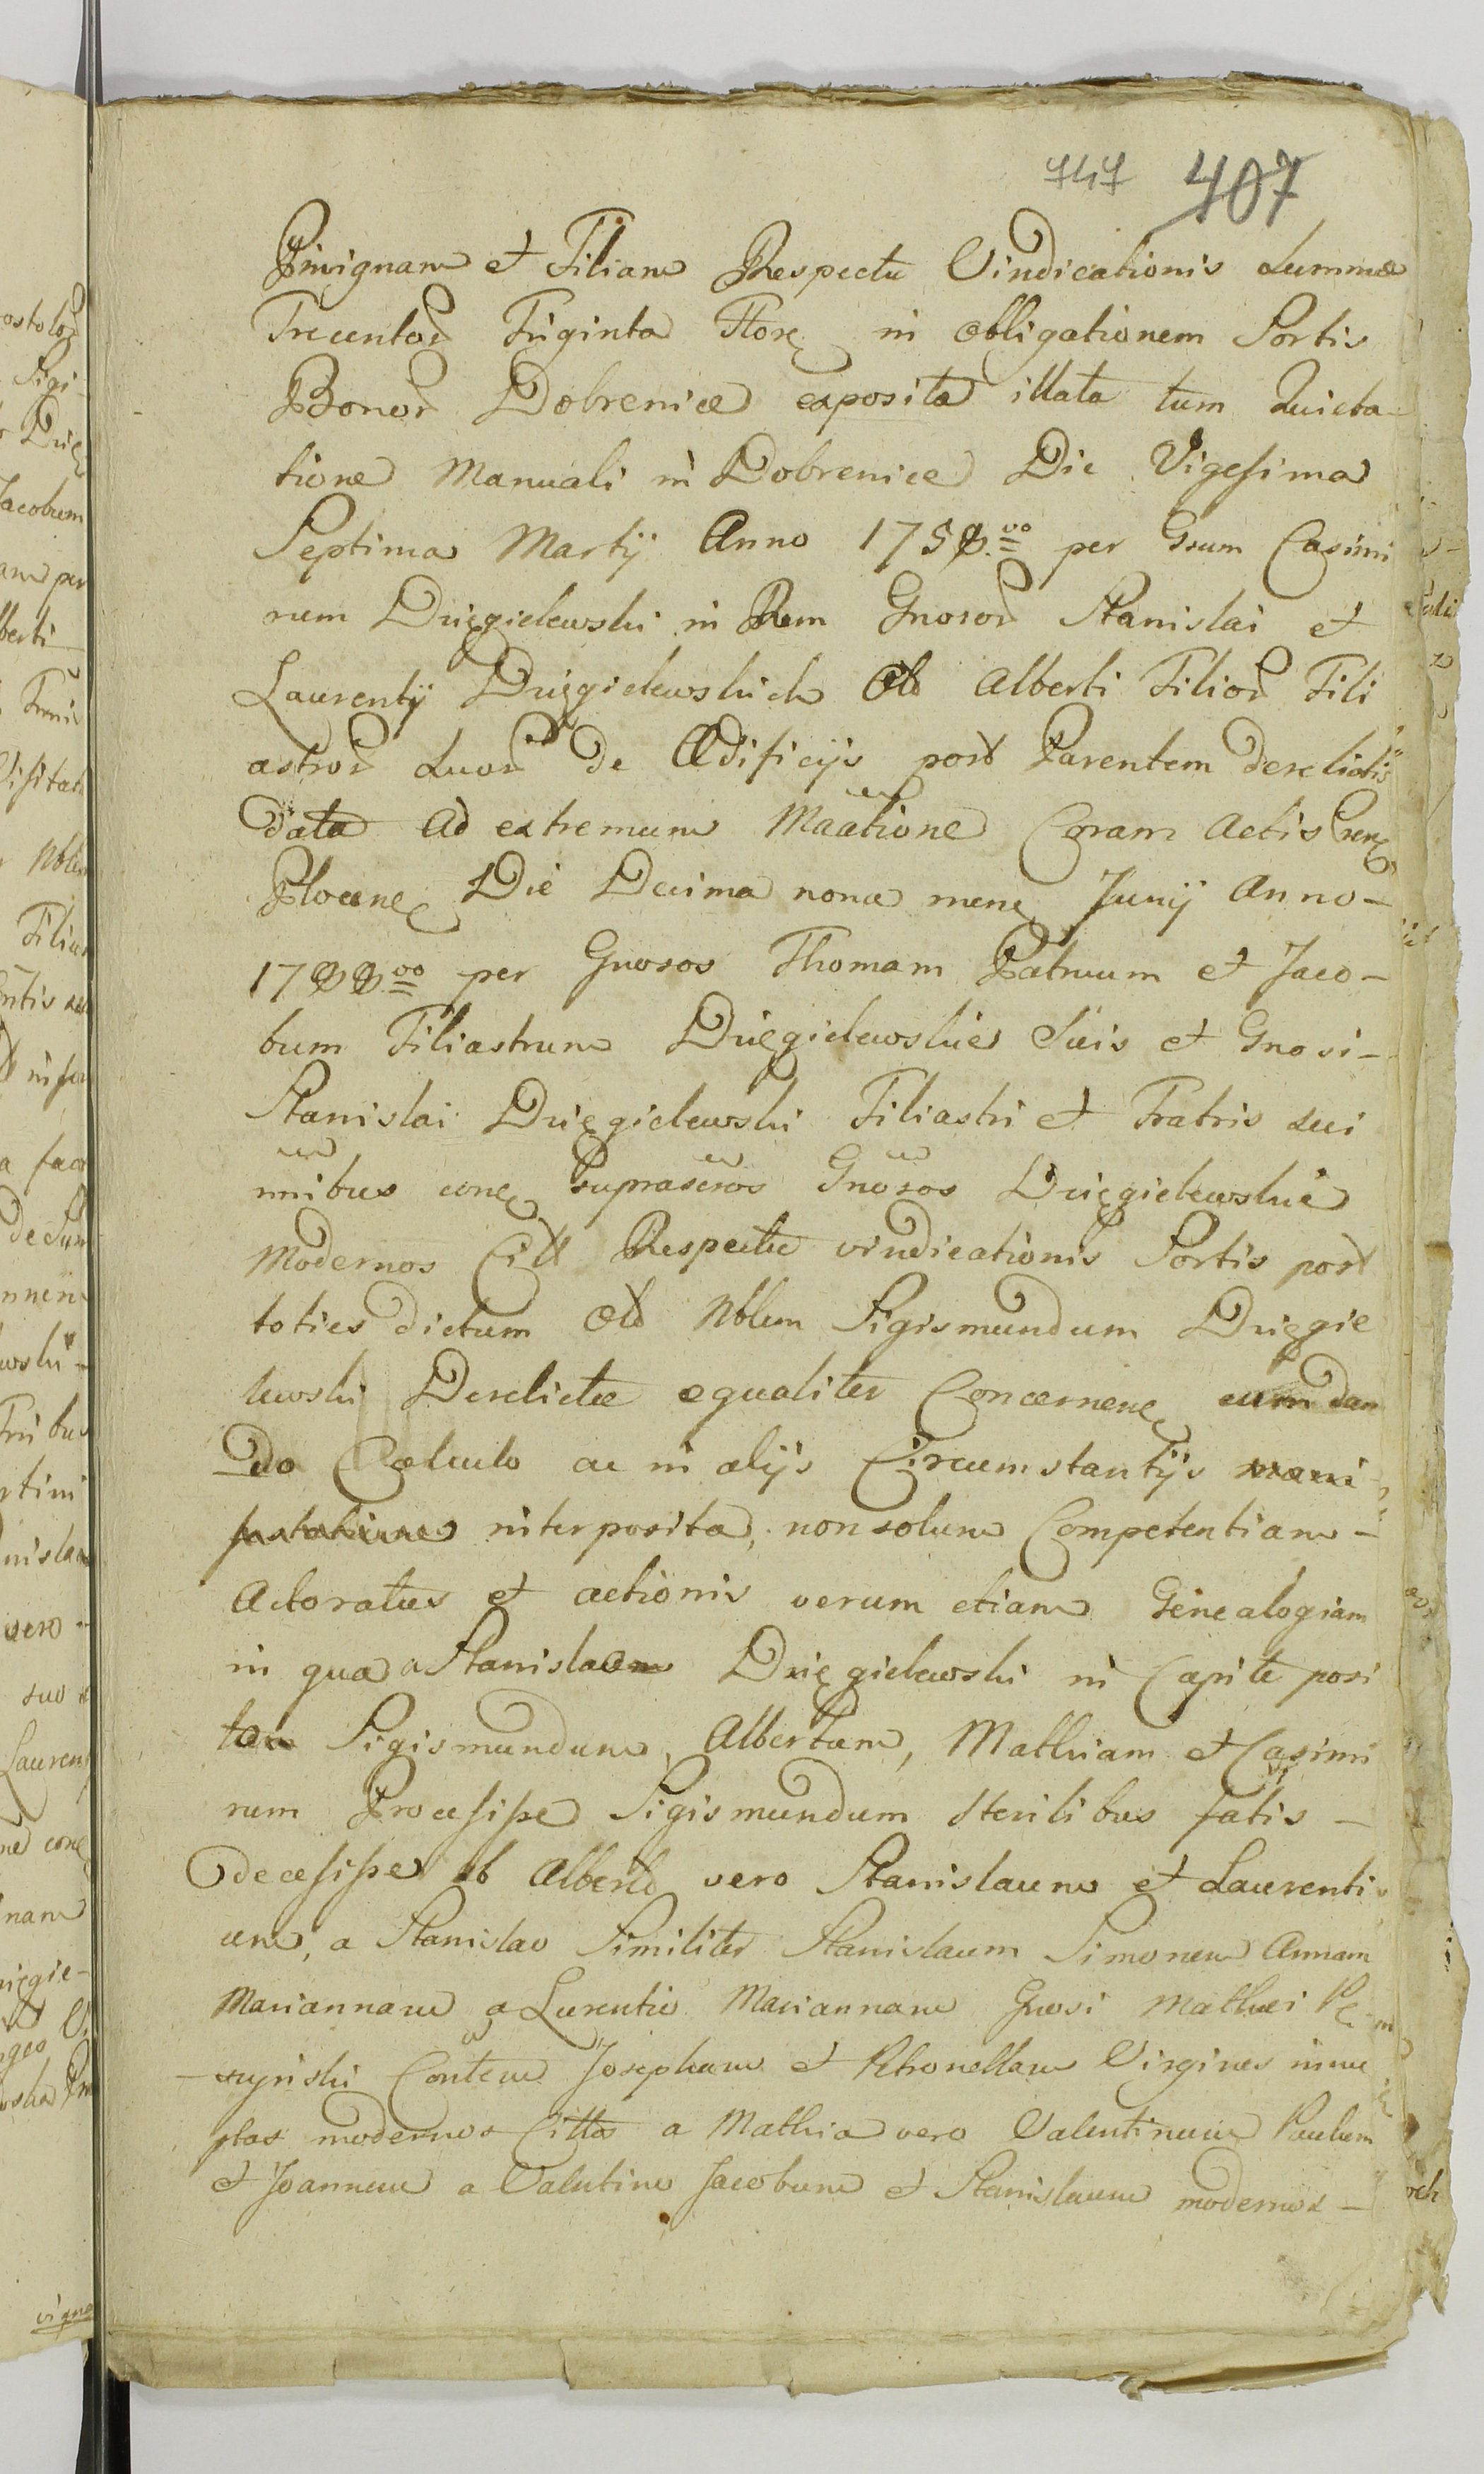 747 407
Privignam et Filiam Respectu Vindicationis Summæ
Trecentor Triginta Flore in obligationem Sortis
Bonor Dobrenice exposita illata tum Quieta-
tione Manuali in Dobrenice Die Vigesima
Septima Martij Anno per Gsum Casimi
rum Dzięgielewski in Rem Gnosor Stanislai et
Laurentij Dzięgielewskich Old Alberti Filior Fili
astror Suor de Ædificijs post Parentem derelictis
data ad extremum Maatione Coram Actis
Plocene Die Decima nona mene Junij Anno-
per Gnosos Thomam Patruum et Jaco-
bum Filiastrum Dzięgielewskie Suis et Gnosi-
Stanislai Dzięgielewski Filiastri et Fratris sui
nnibus cone suprascros Gnosos Dzięgielewskie
modernos Citt Respectu vindicationis Sortis post
toties dictum Old Nblem Sigismundum Dzięgie
lewski Derelictæ equaliter Concernene cum dan
do Calculo ac in alijs Circumstantijs mani-
festatione interposita, non solum Competentiam-
Actoratus et actionis verum etiam Genealogiam
in qua a Stanislao Dzięgielewski in Capite posi
to Sigismundum, Albertum, Mathiam et Casimi
rum Processisse Sigismundum Sterilibus fatis-
decessisse ab Alberto vero Stanislaum et Laurenti
um, a Stanislao Similiter Stanislaum Simonem Annam
Mariannam a Lurentio Mariannam Gnosi Mathæi
Contem Josepham et Petronellam Virgines innu
ptas modernos Cittos a Mathia vero Valentinum Paulum
et Joannem a Valentino Jacobum et Stanislaum modernos-